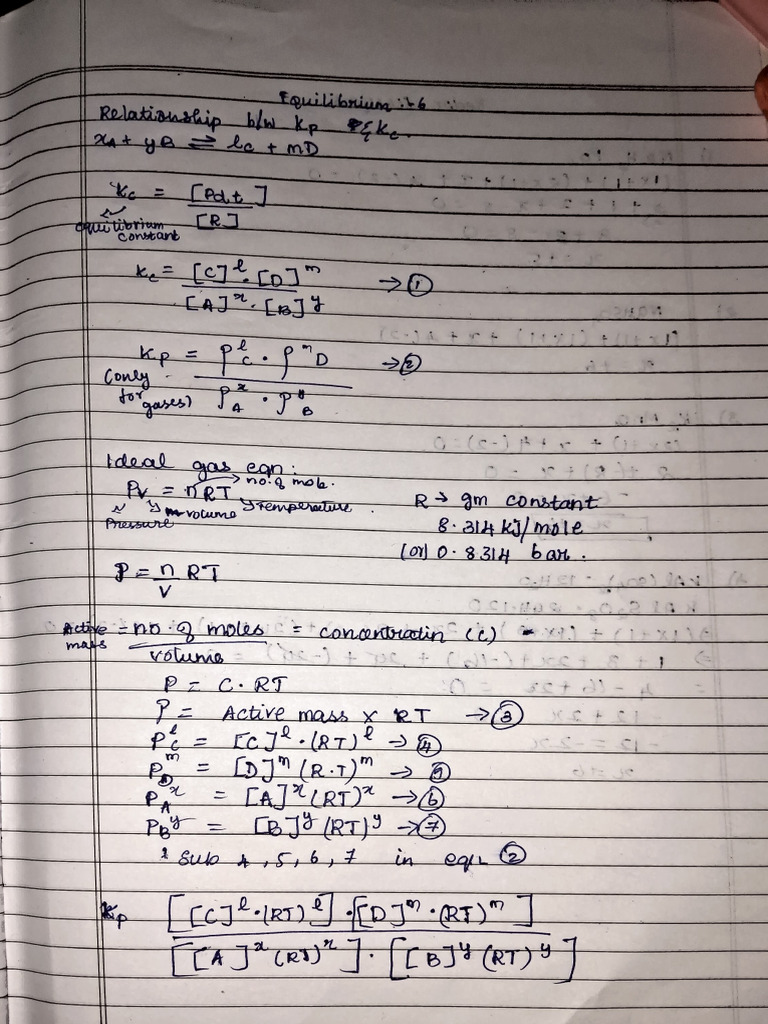 Equilibrium :- 6
Relationship b/w Kp & Kc.
xA + yB ⇌ lC + mD
Kc = [Pdt] / [R]
equilibrium constant
Kc = [C]^l · [D]^m / [A]^x · [B]^y → ①
Kp = P^l_C · P^m D / P^x_A · P^y_B → ②
(only for gases)
Ideal gas eqn:
PV = nRT → no. of mole.
Pressure volume Temperature
R → gm constant
8.314 kJ/mole
(or) 0.8314 bar.
P = n/V RT
Active mass = no of moles / volume = concentratin (c)
P = C · RT
P = Active mass x RT → ③
P^l_C = [C]^l · (RT)^l → ④
P^m_D = [D]^m (R.T)^m → ⑤
P_A^x = [A]^x (RT)^x → ⑥
P_B^y = [B]^y (RT)^y → ⑦
Sub 4, 5, 6, 7 in eqn ②
Kp [[C]^l · (RT)^l] · [[D]^m · (RT)^m] / [[A]^x (RT)^x] · [[B]^y (RT)^y]